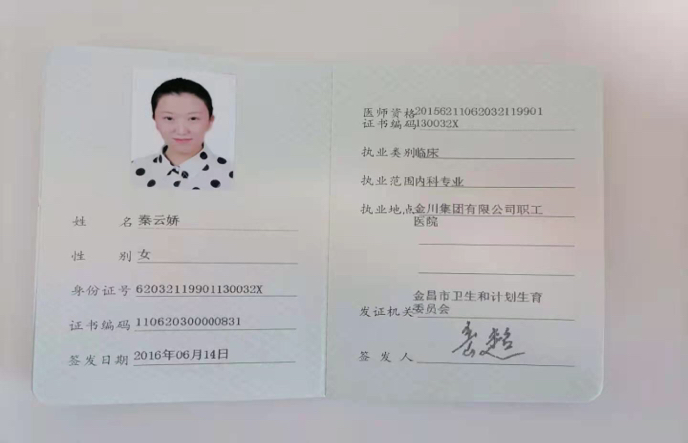 姓名 秦云娇
性别 女
身份证号 62032119901130032X
证书编码 110620300000831
签发日期 2016年06月14日
医师资格 20156211062032119901
证书编码 130032X
执业类别 临床
执业范围 内科专业
执业地点 金川集团有限公司职工
医院
金昌市卫生和计划生育
发证机关 委员会
签发人